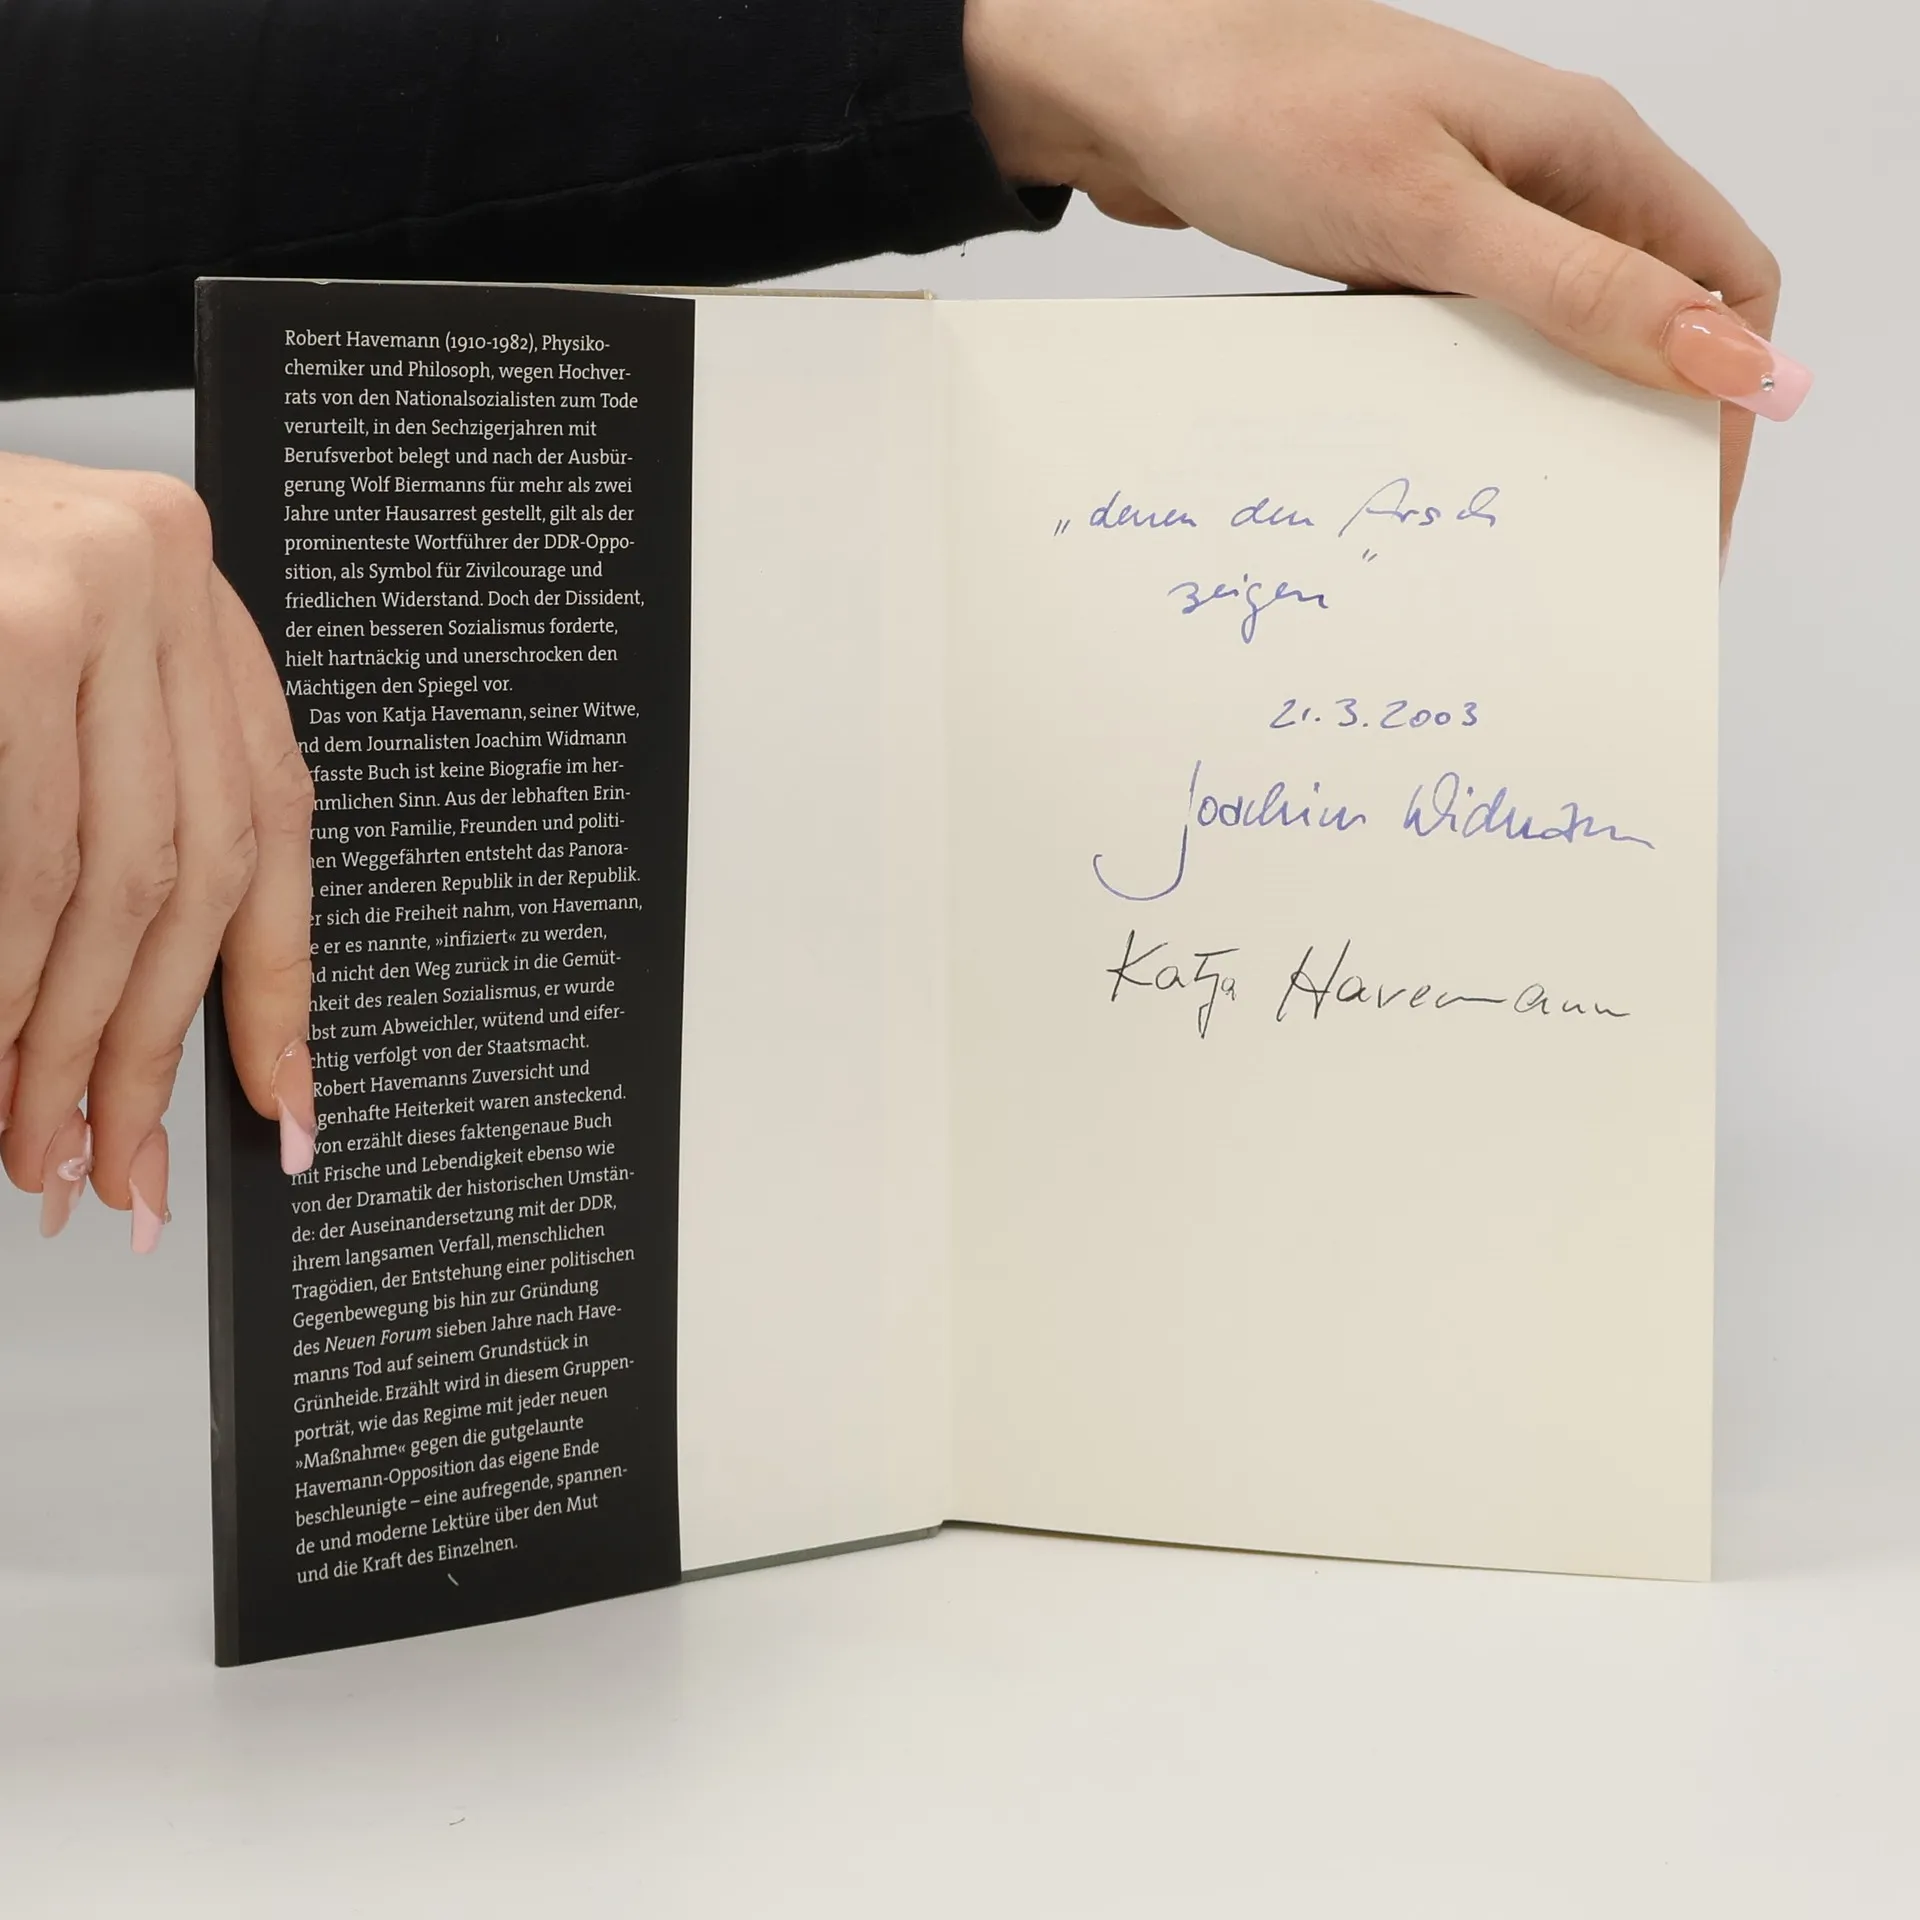 Robert Havemann (1910-1982), Physiko-
chemiker und Philosoph, wegen Hochver-
rats von den Nationalsozialisten zum Tode
verurteilt, in den Sechzigerjahren mit
Berufsverbot belegt und nach der Ausbür-
gerung Wolf Biermanns für mehr als zwei
Jahre unter Hausarrest gestellt, gilt als der
prominenteste Wortführer der DDR-Oppo-
sition, als Symbol für Zivilcourage und
friedlichen Widerstand. Doch der Dissident,
der einen besseren Sozialismus forderte,
hielt hartnäckig und unerschrocken den
Mächtigen den Spiegel vor.
Das von Katja Havemann, seiner Witwe,
nd dem Journalisten Joachim Widmann
fasste Buch ist keine Biografie im her-
mmlichen Sinn. Aus der lebhaften Erin-
rung von Familie, Freunden und politi-
hen Weggefährten entsteht das Panora-
einer anderen Republik in der Republik.
er sich die Freiheit nahm, von Havemann,
e er es nannte, »infiziert« zu werden,
nd nicht den Weg zurück in die Gemüt-
hkeit des realen Sozialismus, er wurde
lbst zum Abweichler, wütend und eifer-
chtig verfolgt von der Staatsmacht.
Robert Havemanns Zuversicht und
genhafte Heiterkeit waren ansteckend.
von erzählt dieses faktengenaue Buch
mit Frische und Lebendigkeit ebenso wie
von der Dramatik der historischen Umstän-
de: der Auseinandersetzung mit der DDR,
ihrem langsamen Verfall, menschlichen
Tragödien, der Entstehung einer politischen
Gegenbewegung bis hin zur Gründung
des Neuen Forum sieben Jahre nach Have-
manns Tod auf seinem Grundstück in
Grünheide. Erzählt wird in diesem Gruppen-
porträt, wie das Regime mit jeder neuen
»Maßnahme« gegen die gutgelaunte
Havemann-Opposition das eigene Ende
beschleunigte – eine aufregende, spannen-
de und moderne Lektüre über den Mut
und die Kraft des Einzelnen.
„denen den Arsch
zeigen"
21.3.2003
Joachim Widmann
Katja Havemann